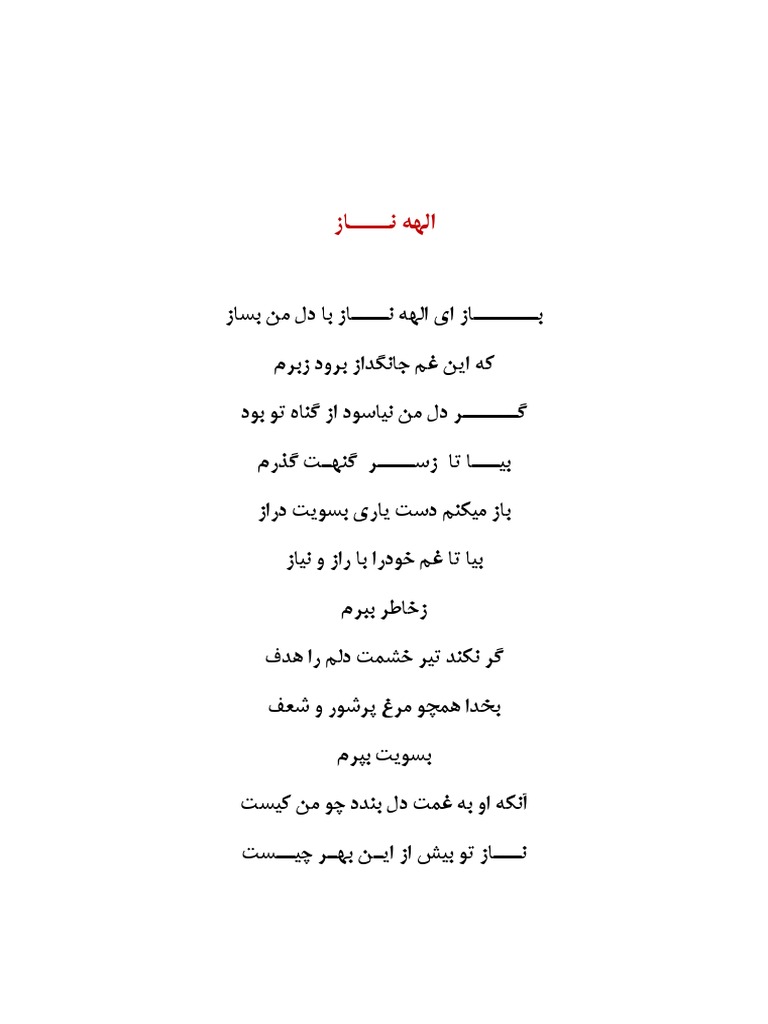 الهه نـــــاز
بـــــــــاز ای الهه نـــــاز با دل من بساز
که این غم جانگداز برود زبرم
گـــــــر دل من نیاسود از گناه تو بود
بیــــا تا زســــــر گنهـت گذرم
باز میکنم دست یاری بسویت دراز
بیا تا غم خودرا با راز و نیاز
زخاطر ببرم
گر نکند تیر خشمت دلم را هدف
بخدا همچو مرغ پرشور و شعف
بسویت بپرم
آنکه او به غمت دل بندد چو من کیست
نــــاز تو بیش از ایـن بهـر چیـــست